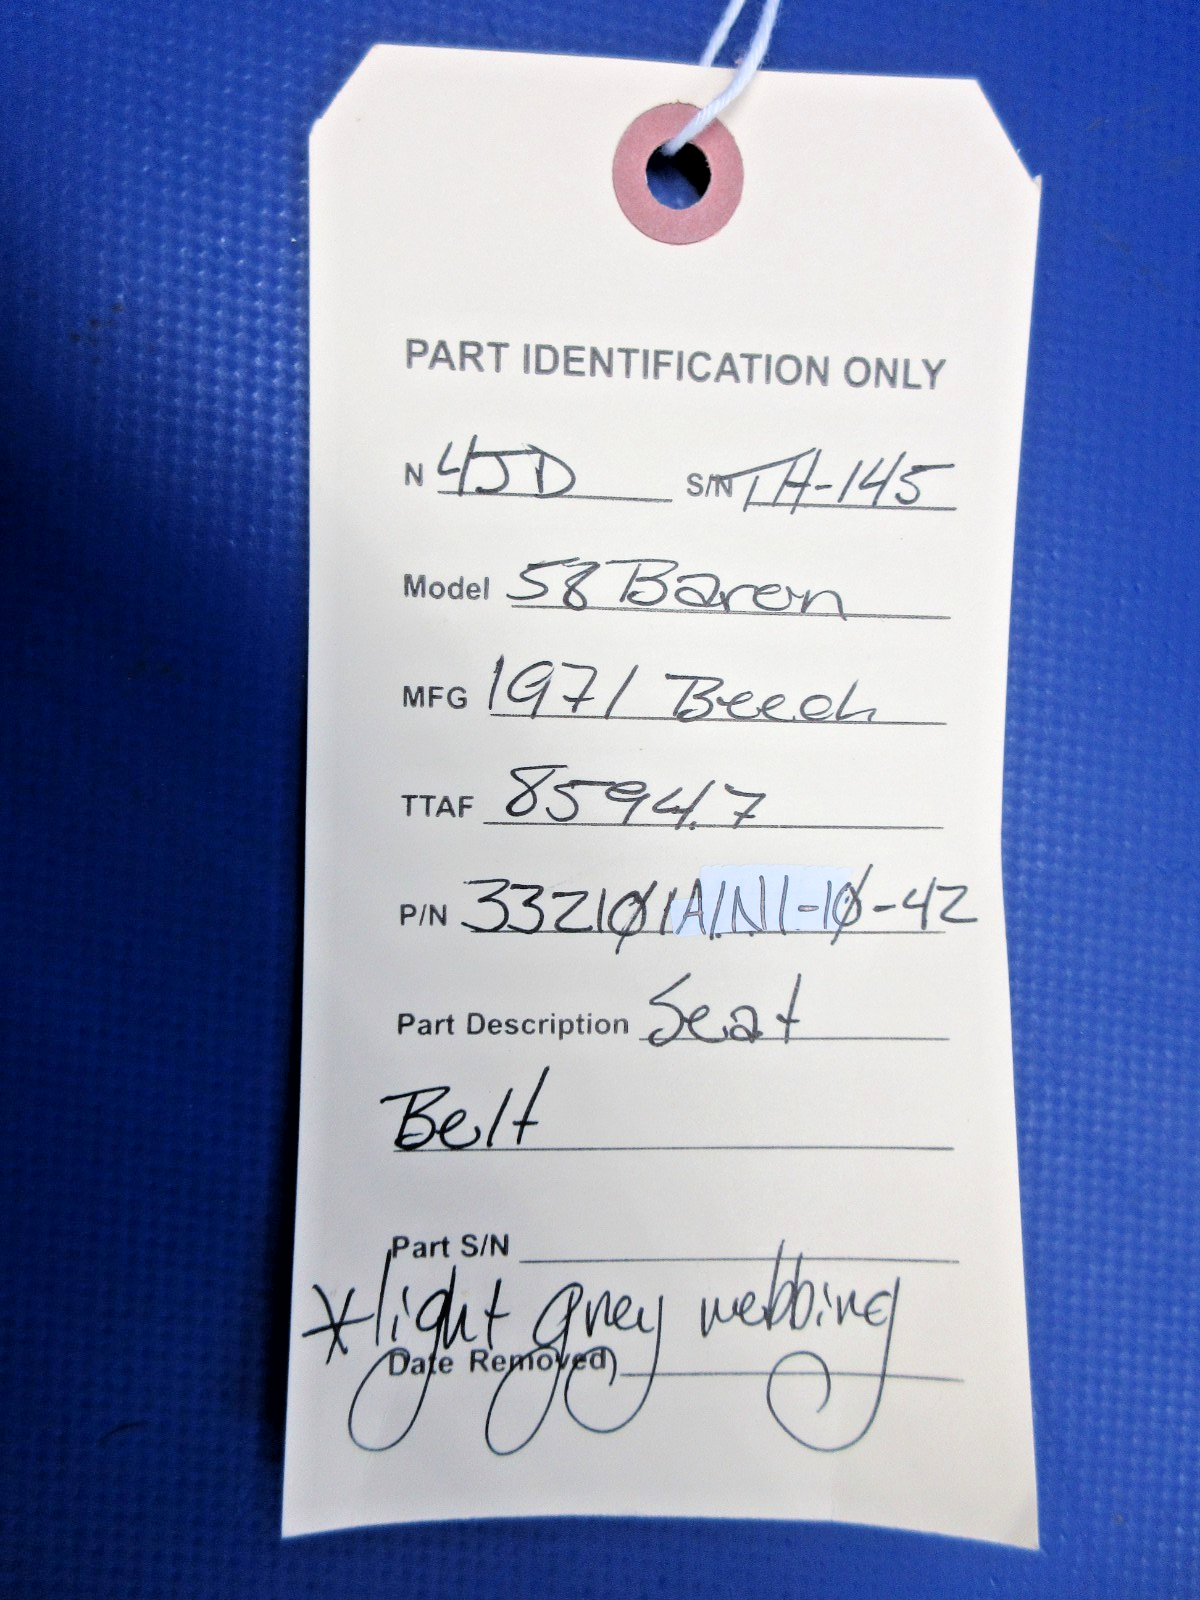 PART IDENTIFICATION ONLY
N 4JD S/N TH-145
Model 58 Baron
MFG 1971 Beech
TTAF 8594.7
P/N 332101A1N1-10-42
Part Description Seat
Belt
Part S/N
*light grey webbing
Date Removed